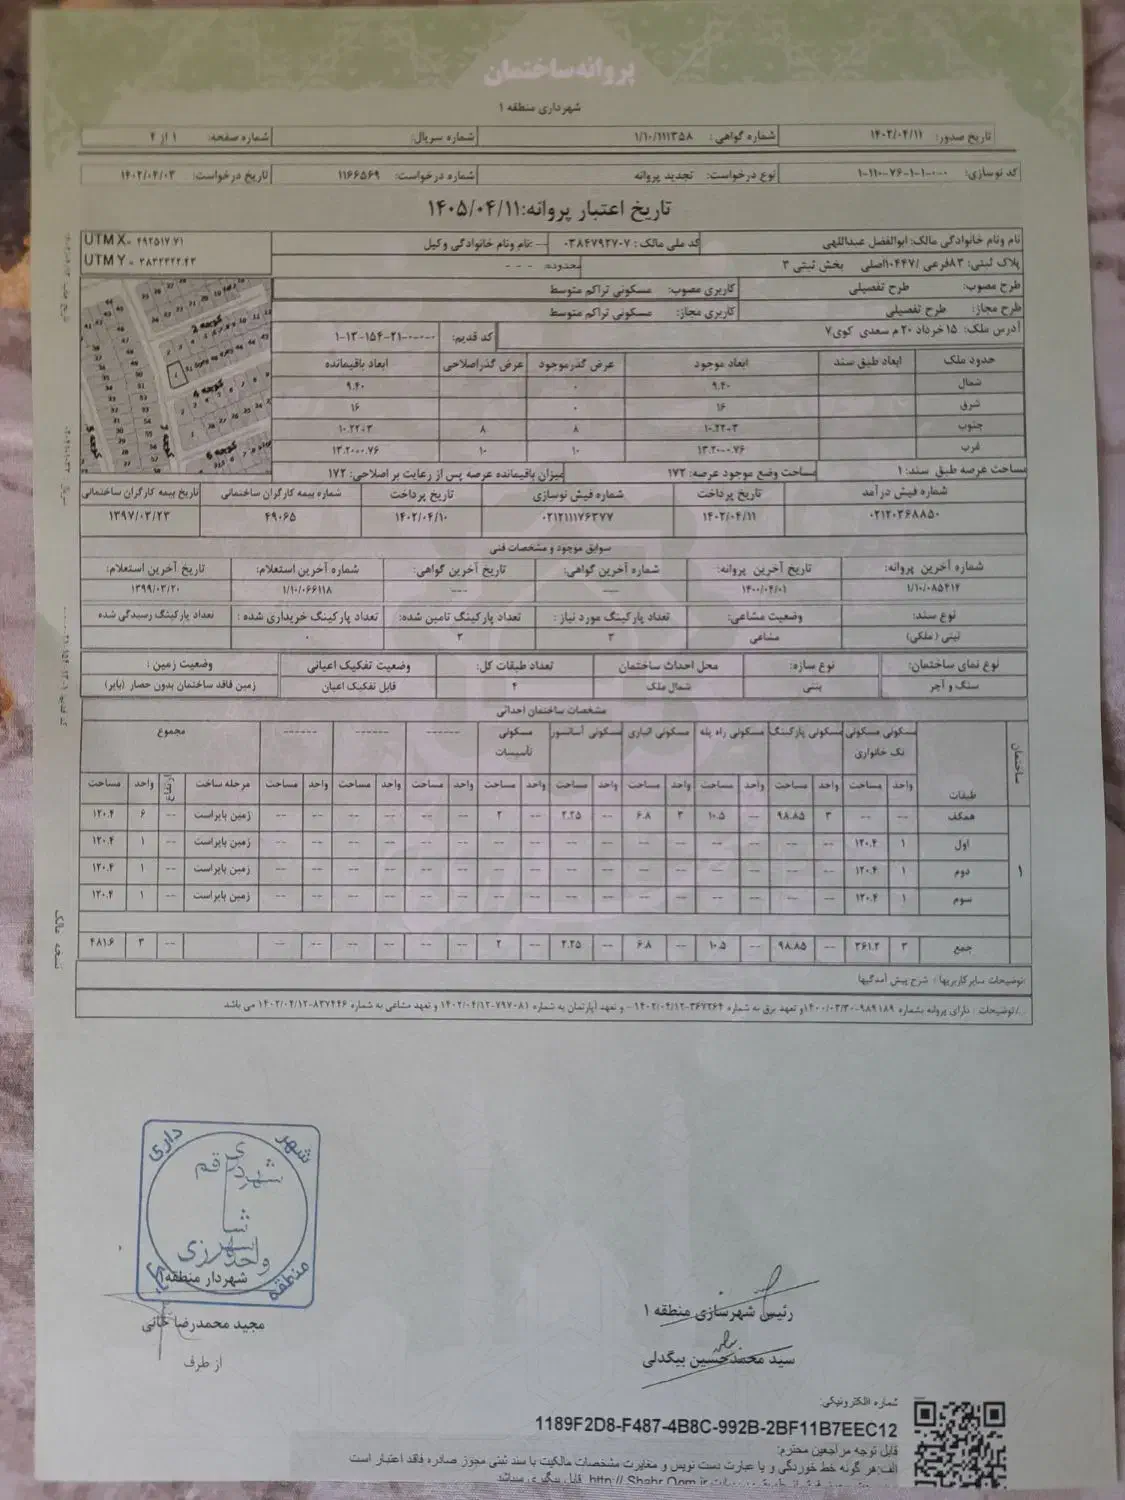 پروانه ساختمان
شهرداری منطقه ۱
تاریخ صدور: ۱۴۰۲/۰۴/۱۱ شماره گواهی: ۱/۱۰/۱۱۱۳۵۸ شماره سریال: شماره صفحه: ۱ از ۴
کد نوسازی: ۱-۱۱۰-۷۶-۱-۱-۰-۰ نوع درخواست: تجدید پروانه شماره درخواست: ۱۱۶۶۵۶۹ تاریخ درخواست: ۱۴۰۲/۰۴/۰۳
تاریخ اعتبار پروانه: ۱۴۰۵/۰۴/۱۱
نام ونام خانوادگی مالک: ابوالفضل عبداللهی کد ملی مالک: ۰۳۸۴۷۹۳۷۰۷ نام ونام خانوادگی وکیل
UTM X= ۴۹۲۵۱۷.۷۱
پلاک ثبتی: ۸۳فرعی /۱۰۴۴۷اصلی بخش ثبتی ۳ محدوده: ---
UTM Y= ۳۸۳۲۲۲۲.۴۳
طرح مصوب: طرح تفصیلی کاربری مصوب: مسکونی تراکم متوسط
طرح مجاز: طرح تفصیلی کاربری مجاز: مسکونی تراکم متوسط
آدرس ملک: ۱۵ خرداد ۲۰ م سعدی کوی۷ کد قدیم: ۱-۱۳-۱۵۴-۲۱-۰-۰-۰
حدود ملک ابعاد طبق سند ابعاد موجود عرض گذرموجود عرض گذراصلاحی ابعاد باقیمانده
شمال ۹.۴۰ ۰ ۹.۴۰
شرق ۱۶ ۰ ۱۶
جنوب ۱۰.۲۲+۳ ۸ ۸ ۱۰.۲۲+۳
غرب ۱۳.۲۰+۰.۷۶ ۱۰ ۱۰ ۱۳.۲۰+۰.۷۶
کوچه 2
کوچه 4
کوچه 6
کوچه 7
کوچه 5
مساحت عرصه طبق سند: ۱ مساحت وضع موجود عرصه: ۱۷۲ میزان باقیمانده عرصه پس از رعایت بر اصلاحی: ۱۷۲
شماره فیش درآمد تاریخ پرداخت شماره فیش نوسازی تاریخ پرداخت شماره بیمه کارگران ساختمانی تاریخ بیمه کارگران ساختمانی
۰۲۱۲۰۲۶۸۸۵۰ ۱۴۰۲/۰۴/۱۱ ۰۲۱۲۱۱۱۷۶۳۷۷ ۱۴۰۲/۰۴/۱۰ ۴۹۰۶۵ ۱۳۹۷/۰۳/۲۳
سوابق موجود و مشخصات فنی
شماره آخرین پروانه: تاریخ آخرین پروانه: شماره آخرین گواهی: تاریخ آخرین گواهی: شماره آخرین استعلام: تاریخ آخرین استعلام:
۱/۱۰/۰۸۵۴۱۴ ۱۴۰۰/۰۴/۰۱ --- --- ۱/۱۰/۰۶۶۱۱۸ ۱۳۹۹/۰۳/۲۰
نوع سند: وضعیت مشاعی: تعداد پارکینگ مورد نیاز: تعداد پارکینگ تامین شده: تعداد پارکینگ خریداری شده: تعداد پارکینگ رسیدگی شده
ثبتی (ملکی) مشاعی ۳ ۳ ۰
نوع نمای ساختمان: نوع سازه: محل احداث ساختمان تعداد طبقات کل: وضعیت تفکیک اعیانی وضعیت زمین:
سنگ و آجر بتنی شمال ملک ۴ قابل تفکیک اعیان زمین فاقد ساختمان بدون حصار (بایر)
مشخصات ساختمان احداثی
ساختمان طبقات مسکونی مسکونی تک خانواری مسکونی پارکینگ مسکونی راه پله مسکونی انباری مسکونی آسانسور مسکونی تأسیسات ------ ------ ------ مجموع
واحد مساحت واحد مساحت واحد مساحت واحد مساحت واحد مساحت واحد مساحت واحد مساحت واحد مساحت واحد مساحت مرحله ساخت ارتفاع واحد مساحت
همکف -- -- ۳ ۹۸.۸۵ -- ۱۰.۵ ۳ ۶.۸ -- ۲.۲۵ -- ۲ -- -- -- -- -- -- زمین بایراست -- ۶ ۱۲۰.۴
اول ۱ ۱۲۰.۴ -- -- -- -- -- -- -- -- -- -- -- -- -- -- -- -- زمین بایراست -- ۱ ۱۲۰.۴
۱ دوم ۱ ۱۲۰.۴ -- -- -- -- -- -- -- -- -- -- -- -- -- -- -- -- زمین بایراست -- ۱ ۱۲۰.۴
سوم ۱ ۱۲۰.۴ -- -- -- -- -- -- -- -- -- -- -- -- -- -- -- -- زمین بایراست -- ۱ ۱۲۰.۴
جمع ۳ ۳۶۱.۲ -- ۹۸.۸۵ -- ۱۰.۵ -- ۶.۸ -- ۲.۲۵ -- ۲ -- -- -- -- -- -- -- ۳ ۴۸۱.۶
توضیحات سایرکاربریها / شرح پیش آمدگیها
توضیحات: دارای پروانه بشماره ۹۸۹۱۸۹-۱۴۰۰/۰۳/۳۰ و تعهد برق به شماره ۳۶۷۲۶۴-۱۴۰۲/۰۴/۱۲ - و تعهد آپارتمان به شماره ۷۹۷۰۸۱-۱۴۰۲/۰۴/۱۲ و تعهد مشاعی به شماره ۸۳۷۴۴۶-۱۴۰۲/۰۴/۱۲ می باشد
نسخه مالک
شهر داری
شهرداری قم
واحد شهرسازی
منطقه
شهردار منطقه ۱
مجید محمدرضا خانی
از طرف
رئیس شهرسازی منطقه ۱
سید محمدحسین بیگدلی
شماره الکترونیکی:
1189F2D8-F487-4B8C-992B-2BF11B7EEC12
قابل توجه مراجعین محترم:
الف:هر گونه خط خوردگی و یا عبارت دست نویس و مغایرت مشخصات مالکیت با سند ثبتی مجوز صادره فاقد اعتبار است
http://Shahr.Qom.ir قابل پیگیری میباشد